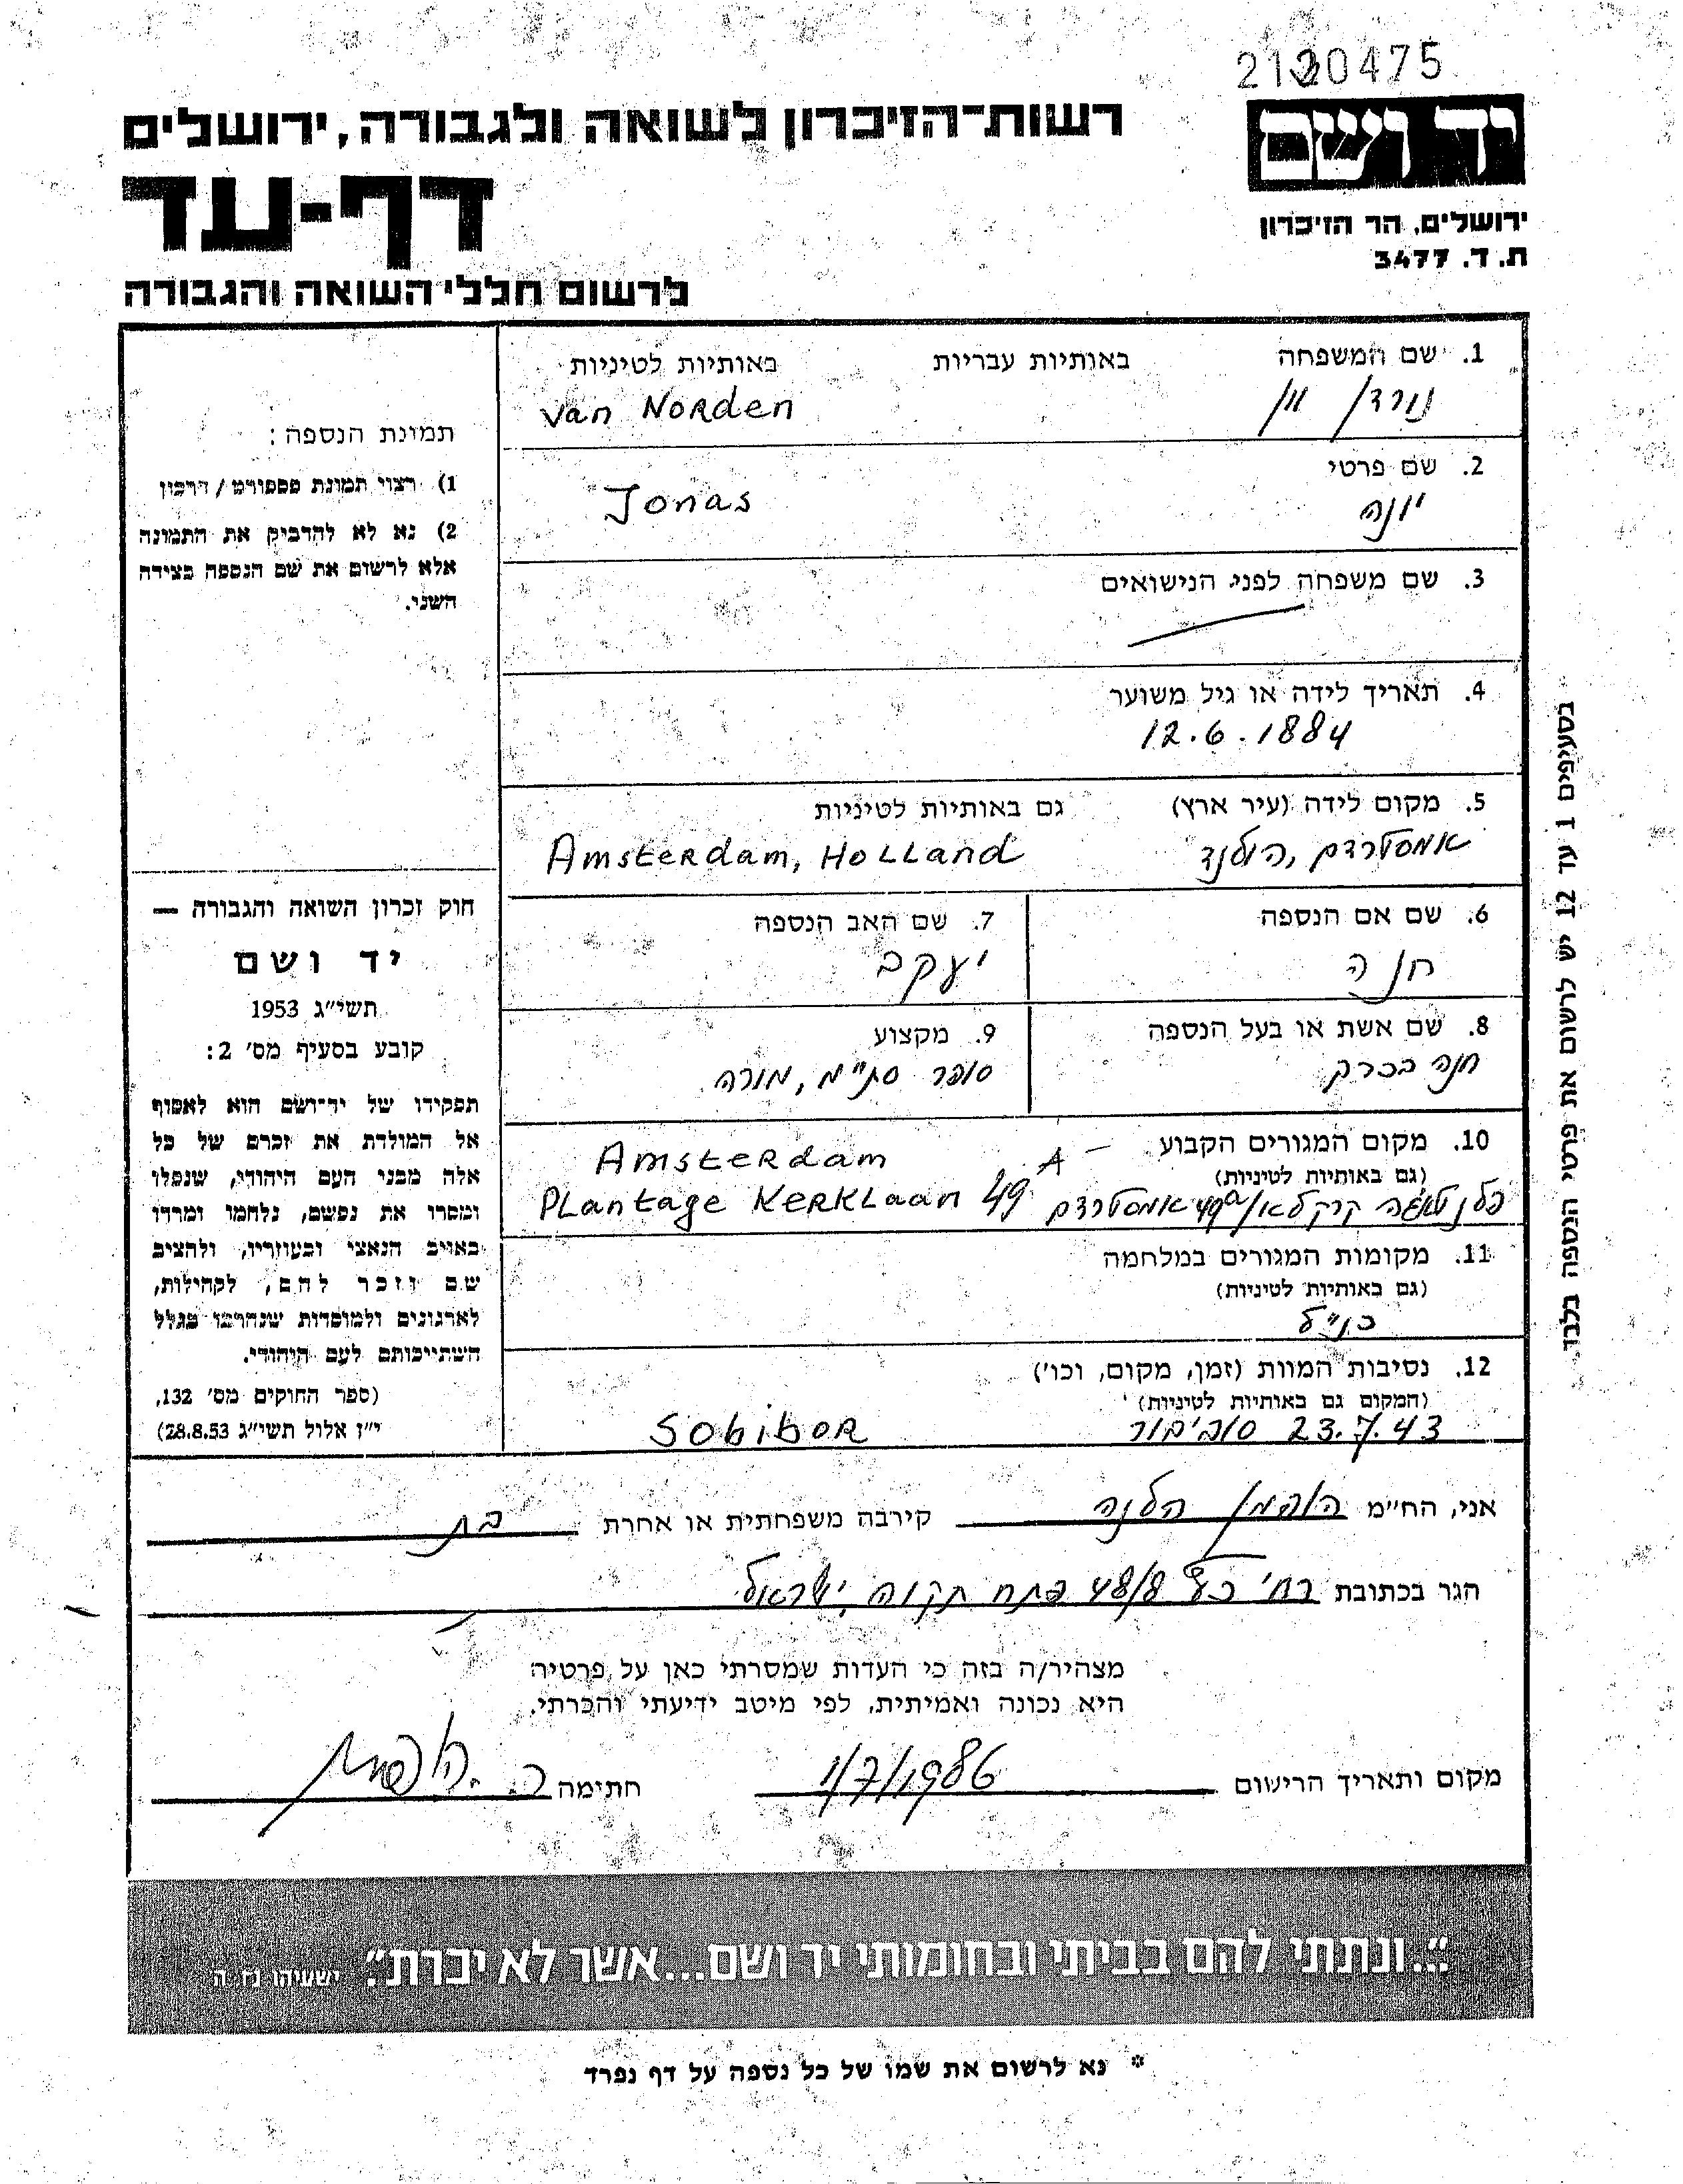 2120475
יד ושם
רשות-הזיכרון לשואה ולגבורה, ירושלים
דף-עד
לרשום חללי השואה והגבורה
ירושלים, הר הזיכרון
ת. ד. 3477
1. שם המשפחה באותיות עבריות באותיות לטיניות
נורדן ון Van Norden
2. שם פרטי
יונה Jonas
3. שם משפחה לפני הנישואים
4. תאריך לידה או גיל משוער
12.6.1884
5. מקום לידה (עיר ארץ) גם באותיות לטיניות
אמסטרדם, הולנד Amsterdam, Holland
6. שם אם הנספה
חנה
7. שם האב הנספה
יעקב
8. שם אשת או בעל הנספה
חנה
9. מקצוע
סופר סת"מ, מורה
10. מקום המגורים הקבוע
(גם באותיות לטיניות)
Amsterdam
Plantage Kerklaan 49 A
פלנטאגה קרקלאן 49a אמסטרדם
11. מקומות המגורים במלחמה
(גם באותיות לטיניות)
כנ"ל
12. נסיבות המוות (זמן, מקום, וכו')
(המקום גם באותיות לטיניות)
23.7.43 סוביבור Sobibor
תמונת הנספה:
1) רצוי תמונת פספורט / דרכון
2) נא לא להדביק את התמונה
אלא לרשום את שם הנספה בצידה
השני.
חוק זכרון השואה והגבורה —
יד ושם
תשי"ג 1953
קובע בסעיף מס' 2:
תפקידו של יד-ושם הוא לאסוף
אל המולדת את זכרם של כל
אלה מבני העם היהודי, שנפלו
ומסרו את נפשם, נלחמו ומרדו
באויב הנאצי ובעוזריו, ולהציב
שם וזכר להם, לקהילות,
לארגונים ולמוסדות שנחרבו בגלל
השתייכותם לעם היהודי.
(ספר החוקים מס' 132,
י"ז אלול תשי"ג 28.8.53)
בסעיפים 1 עד 12 יש לרשום את פרטי הנספה בלבד.
אני, הח"מ הופמן הלנה קירבה משפחתית או אחרת בת
הגר בכתובת רח' 48/8 פתח תקוה, ישראל
מצהיר/ה בזה כי העדות שמסרתי כאן על פרטיה
היא נכונה ואמיתית, לפי מיטב ידיעתי והכרתי.
מקום ותאריך הרישום 1/7/1986 חתימה
"...ונתתי להם בביתי ובחומותי יד ושם...אשר לא יכרת". ישעיהו נו ה
* נא לרשום את שמו של כל נספה על דף נפרד